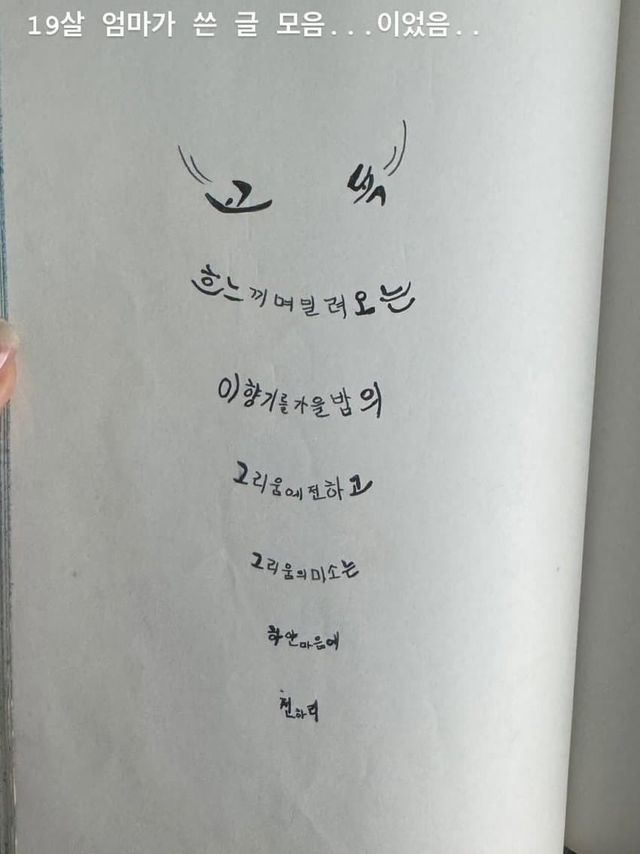 19살 엄마가 쓴 글 모음...이었음..
고백
흐느끼며 밀려오는
이 향기를 가을밤의
그리움에 전하고
그리움의 미소는
하얀마음에
전하리